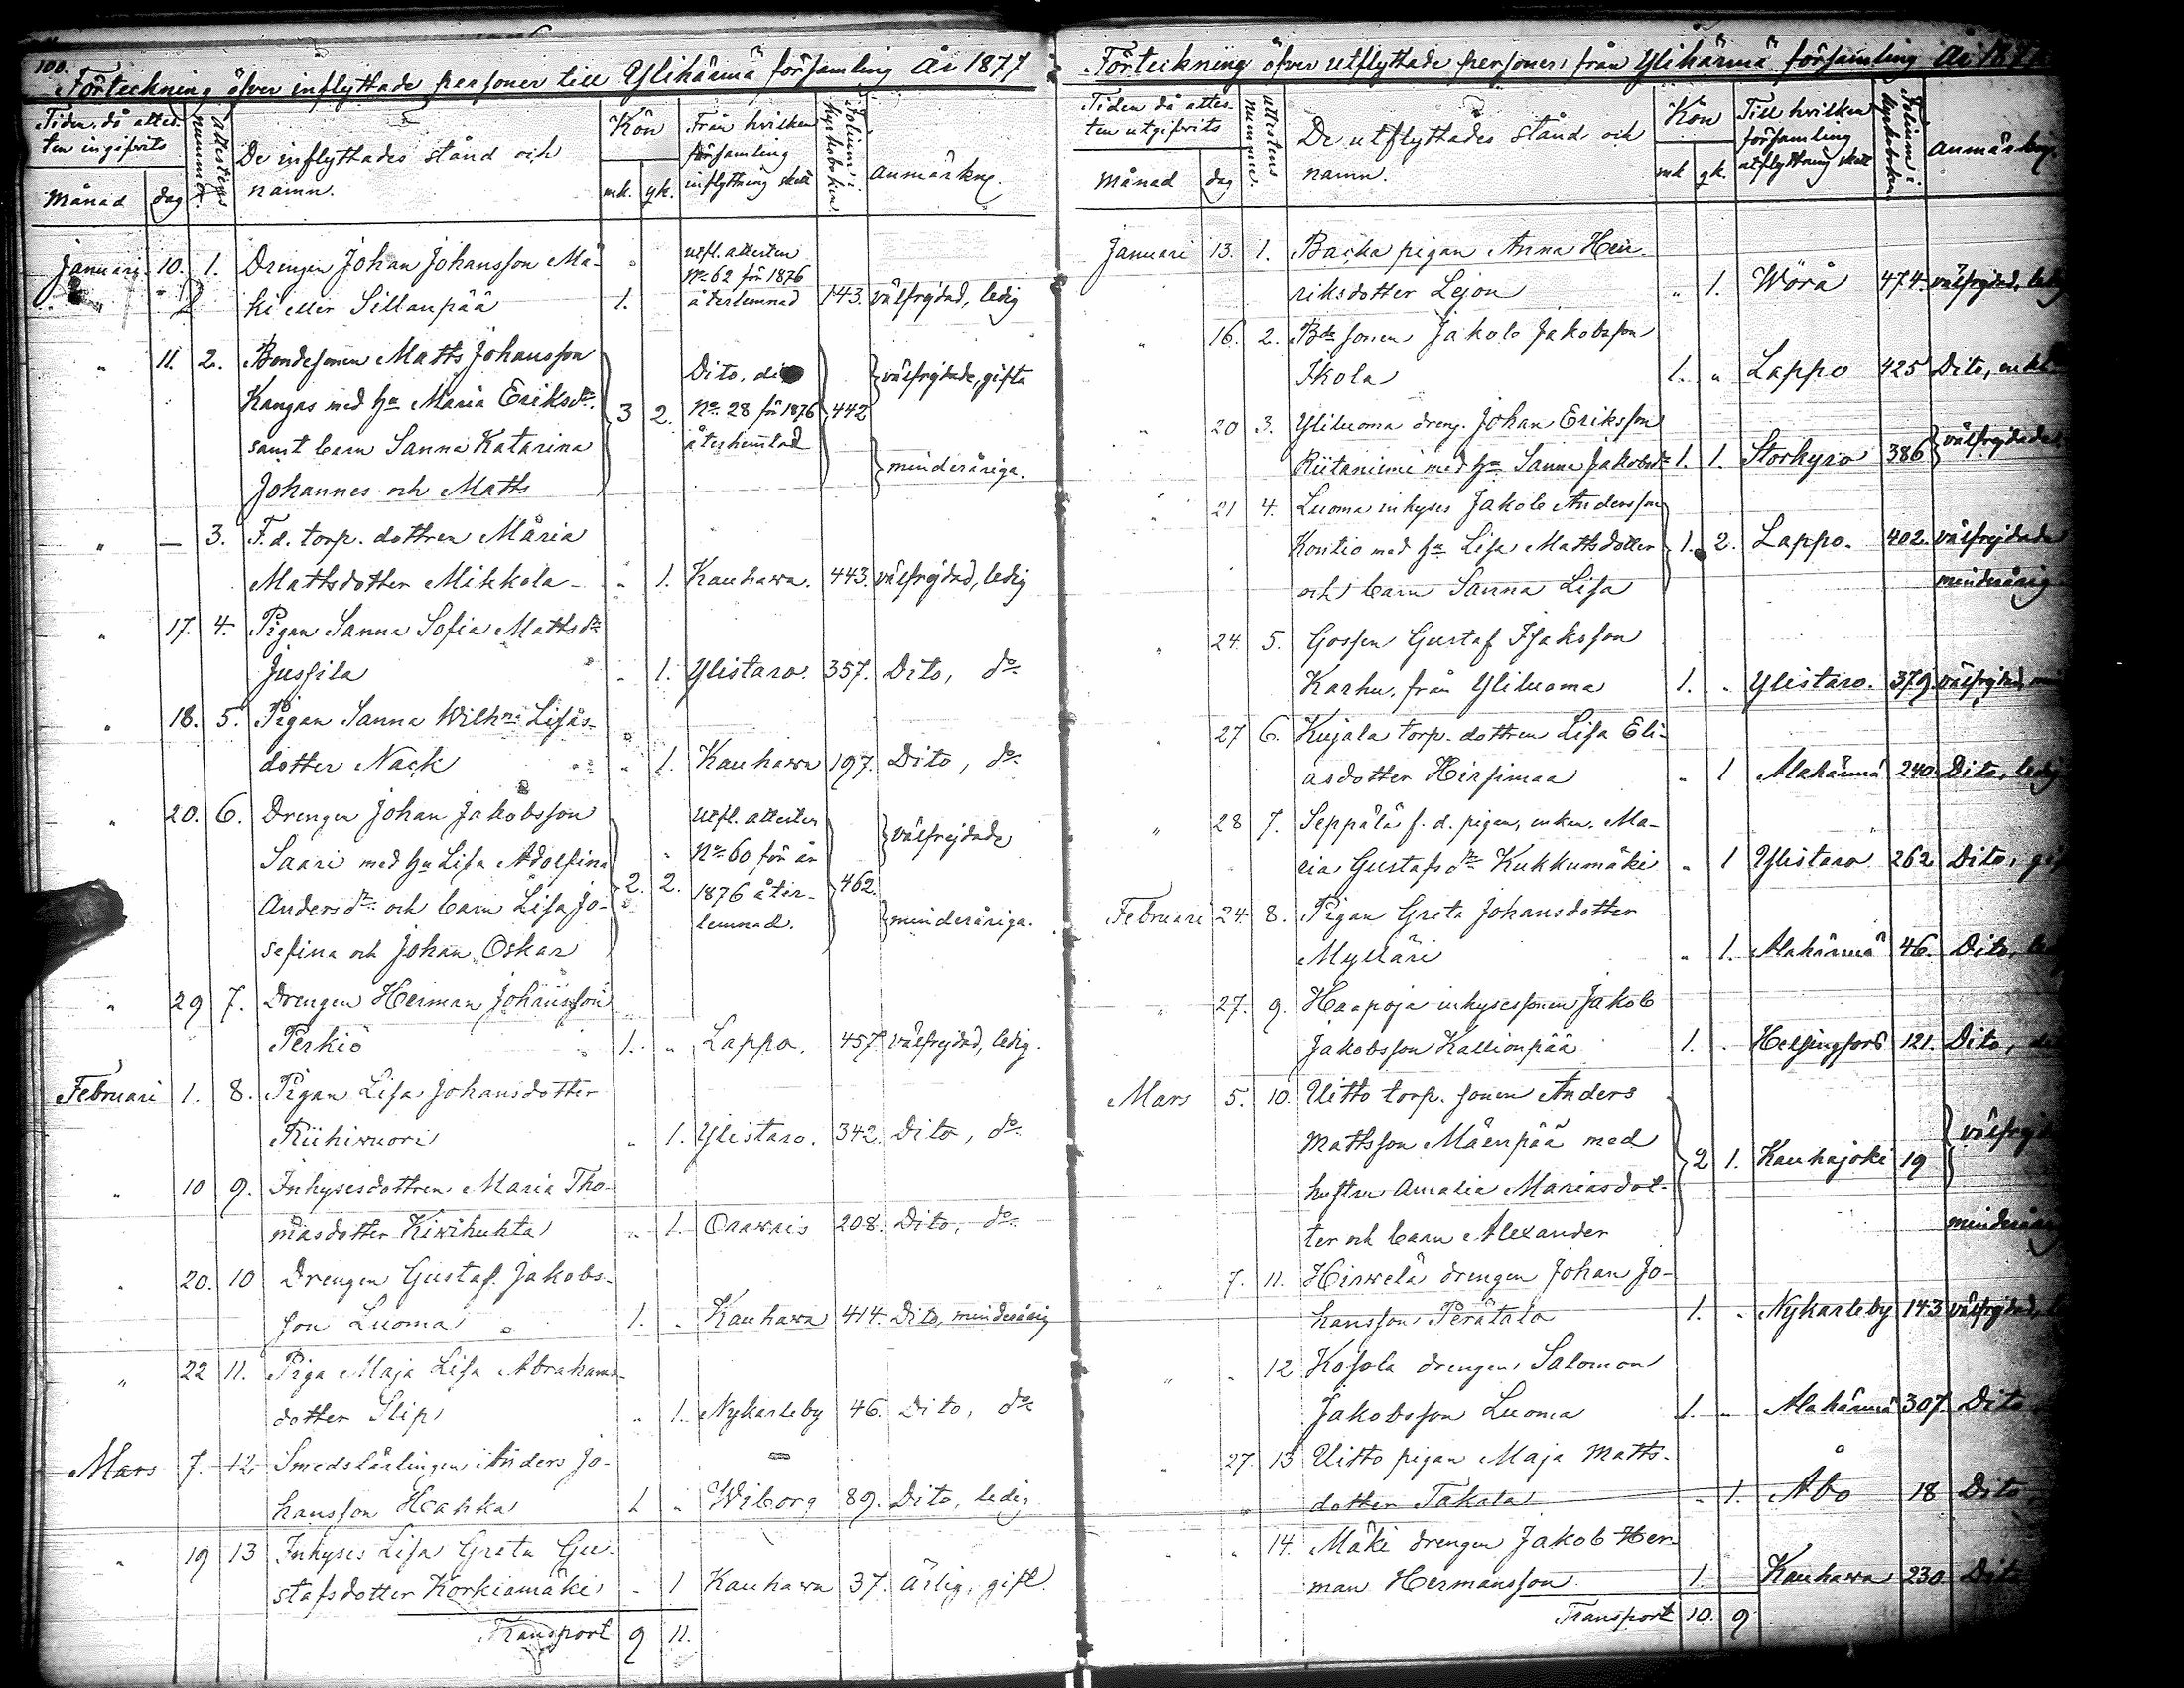 100.
Förteckning öfver inflyttade personer till Ylihärmä församling År 1877
Tiden, då attes-
ten ingifvits
Månad
dag
Attestens
nummer.
De inflyttades stånd och
namn.
Kön
mk.
qk.
Från hvilken
församling
inflyttning skett
Folium i
kyrkoboken.
Anmärkng.
Januari 10. 1. Drengen Johan Johansson Mä-
ki eller Sillanpää 1. utfl. attesten
No 62 för 1876
återlemnad 143. välfrejdad, ledig
" 11. 2. Bondesonen Matts Johansson
Kangas med hu Maria Eriksdr
samt barn Sanna Katarina
Johannes och Matts
3 2. Dito, dito
No 28 för 1876
återhemtad
442
välfrejdade, gifta
minderåriga.
" — 3. F.d. torp. dottren Maria
Mattsdotter Mikkola " 1. Kauhawa. 443. välfrejdad, ledig
" 17. 4. Pigan Sanna Sofia Mattsdr
Jussila " 1. Ylistaro. 357. Dito, do
" 18. 5. Pigan Sanna Wilhna Lisas-
dotter Nack " 1. Kauhawa 197. Dito, do
" 20. 6. Drengen Johan Jakobsson
Saari med hu Lisa Adolfina
Andersdr och barn Lisa Jo-
sefina och Johan Oskar
2. 2. Utfl. attesten
No 60 för år
1876 åter-
lemnad.
462.
välfrejdade
minderåriga.
" 29 7. Drengen Herman Johansson
Perkiö 1. " Lappo. 457 välfrejdad, ledig.
Februari 1. 8. Pigan Lisa Johansdotter
Riihiwuori " 1. Ylistaro. 342. Dito, do
" 10 9. Inhysesdottren Maria Tho-
masdotter Kiwihuhta " 1. Orawais 208. Dito, do
" 20. 10 Drengen Gustaf Jakobs-
son Luoma 1. " Kauhawa 414. Dito, minderårig
" 22 11. Piga Maja Lisa Abrahams-
dotter Slip " 1. Nykarleby 46. Dito, do
Mars 7. 12. Smedslärlingen Anders Jo-
hansson Hahka 1 " Wiborg 89. Dito, ledig
" 19 13 Inhyses Lisa Greta Gu-
stafsdotter Korkiamäki " 1 Kauhawa 37. Ärlig, gift
Transport 9 11.
Förteckning öfver utflyttade personer från Ylihärmä församling År 187
Tiden då attes-
ten utgifvits
Månad
dag
attestens
nummer.
De utflyttades stånd och
namn.
Kön
mk
qk.
Till hvilken
församling
utflyttning skett
Folium i
kyrkoboken.
Anmärkng.
Januari 13. 1. Backa pigan Anna Hen-
riksdotter Lejon " 1. Wörå 474. välfrejdad, ledig
" 16. 2. Bde sonen Jakob Jakobsson
Ikola 1. " Lappo 425 Dito,
" 20 3. Yliluoma dreng. Johan Eriksson
Riitaniemi med hu Sanna Jakobsdr 1. 1. Storkyro 386 välfrejdade
" 21 4. Luoma inhyses Jakob Andersson
Kontio med hu Lisa Mattsdotter 1. 2. Lappo. 402. välfrejdade
och barn Sanna Lisa minderårig
" 24. 5. Gossen Gustaf Isaksson
Karhu, från Yliluoma 1. " Ylistaro. 379. välfrejdad
" 27 6. Kujala torp. dottren Lisa Eli-
asdotter Hirsimaa " 1 Alahärmä 240. Dito, ledig
" 28 7. Seppälä f. d. pigan, enkan, Ma-
ria Gustafsdr Kukkumäki " 1 Ylistaro 262 Dito,
Februari 24. 8. Pigan Greta Johansdotter
Mylläri " 1. Alahärmä 46. Dito,
" 27. 9. Haapoja inhysessonen Jakob
Jakobsson Kallionpää 1. " Helsingfors 121. Dito,
Mars 5. 10. Uitto torp. sonen Anders
Mattsson Mäenpää med
hustru Amalia Mariasdot-
ter och barn Alexander
2 1. Kauhajoki 19
minderårig
" 7. 11. Hirwelä drengen Johan Jo-
hansson Perätalo 1. " Nykarleby 143 välfrejdad,
" " 12 Kosola drengen Salomon
Jakobsson Luoma 1. " Alahärmä 307. Dito
" 27. 13 Uitto pigan Maja Matts-
dotter Takala " 1. Åbo 18 Dito
" " 14. Mäki drengen Jakob Her-
man Hermansson 1. Kauhawa 230 Dito
Transport 10. 9